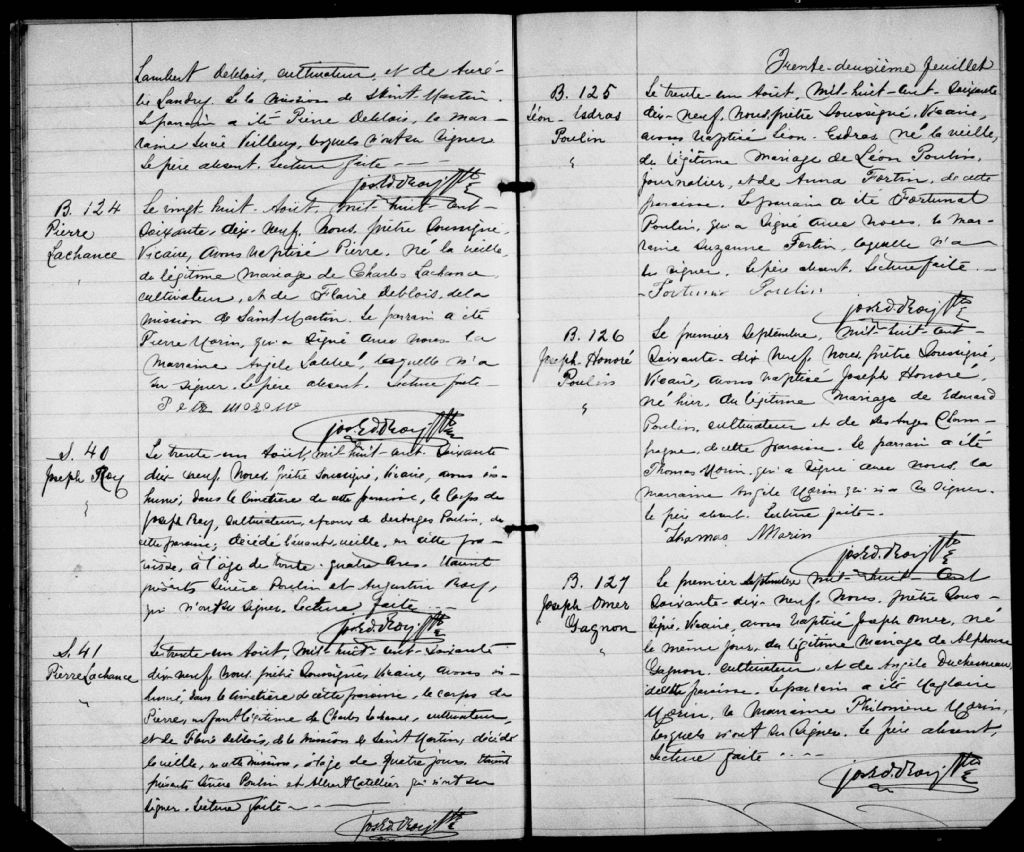 Lambert Deblois, cultivateur, et de Auré-
lie Landry. De la mission de Saint-Martin.
Le parrain a été Pierre Deblois, la mar-
raine Lucie Veilleux, lesquels n'ont su signer
Le père absent. Lecture faite - - -
Jos. Ed. Roy Ptre
B. 124
Pierre
Lachance
Le vingt huit Août, mil-huit-cent-
Soixante-dix-neuf, Nous, prêtre soussigné,
Vicaire, avons baptisé Pierre, Né la veille,
du légitime mariage de Charles Lachance,
cultivateur, et de Flavie Deblois, de la
mission de Saint-Martin. Le parrain a été
Pierre Morin, qui a signé avec nous la
marraine Angèle Labbé, laquelle n'a
su signer. Le père absent. Lecture faite
Jos. Ed. Roy Ptre
S. 40
Joseph Roy
"
Le trente-un Août, mil-huit-cent-Soixante
dix-neuf, Nous, prêtre soussigné, Vicaire, avons in-
humé, dans le cimetière de cette paroisse, le corps de
Joseph Roy, cultivateur, époux de desanges Poulin, de
cette paroisse; décédé l'avant-veille, en cette pa-
roisse, à l'âge de trente-quatre ans. Etaient
présents Poulin et Augustin Roy,
qui n'ont su signer. Lecture faite - - -
Jos. Ed. Roy Ptre
S. 41
Pierre Lachance
"
Le trente-un Août, mil-huit-cent-soixante
dix-neuf, Nous, prêtre soussigné, Vicaire, avons in-
humé, dans le cimetière de cette paroisse, le corps de
Pierre, enfant légitime de Charles Lachance, cultivateur,
et de Flavie Deblois, de la mission de Saint Martin, décédé
la veille, en cette mission, à l'âge de quatre jours. Etaient
présents Poulin et Albert qui n'ont su
signer. Lecture faite - - -
Jos. Ed. Roy Ptre
Trente-deuxième feuillet
B. 125
Léon-Esdras
Poulin
"
Le trente-un Août, mil-huit-cent-Soixante
dix-neuf, Nous, prêtre soussigné, Vicaire,
avons baptisé Léon-Esdras né la veille,
du légitime mariage de Léon Poulin,
journalier, et de Anna Fortin, de cette
paroisse. Le parrain a été Fortunat
Poulin, qui a signé avec nous, la mar-
raine Suzanne Fortin, laquelle n'a
su signer. Le père absent. Lecture faite. -
Poulin
Jos. Ed. Roy Ptre
B. 126
Joseph Honoré
Poulin
"
Le premier Septembre, mil-huit-cent-
Soixante-dix-neuf, Nous, prêtre soussigné,
Vicaire, avons baptisé Joseph Honoré,
né hier, du légitime mariage de Edouard
Poulin, cultivateur et de desAnges Cham-
pagne, de cette paroisse. Le parrain a été
Thomas Morin, qui a signé avec nous, la
marraine Angèle Morin qui n'a su signer.
Le père absent. Lecture faite -
Thomas Morin
Jos. Ed. Roy Ptre
B. 127
Joseph Omer
Gagnon
"
Le premier septembre mil-huit-cent
Soixante-dix-neuf, Nous, prêtre sous-
signé, Vicaire, avons baptisé Joseph Omer, né
le même jour, du légitime mariage de Alphonse
Gagnon, cultivateur, et de Angèle Duchesneau,
de cette paroisse. Le parrain a été Magloire
Morin, la marraine Philomène Morin,
lesquels n'ont su signer. Le père absent,
Lecture faite - - - -
Jos. Ed. Roy Ptre